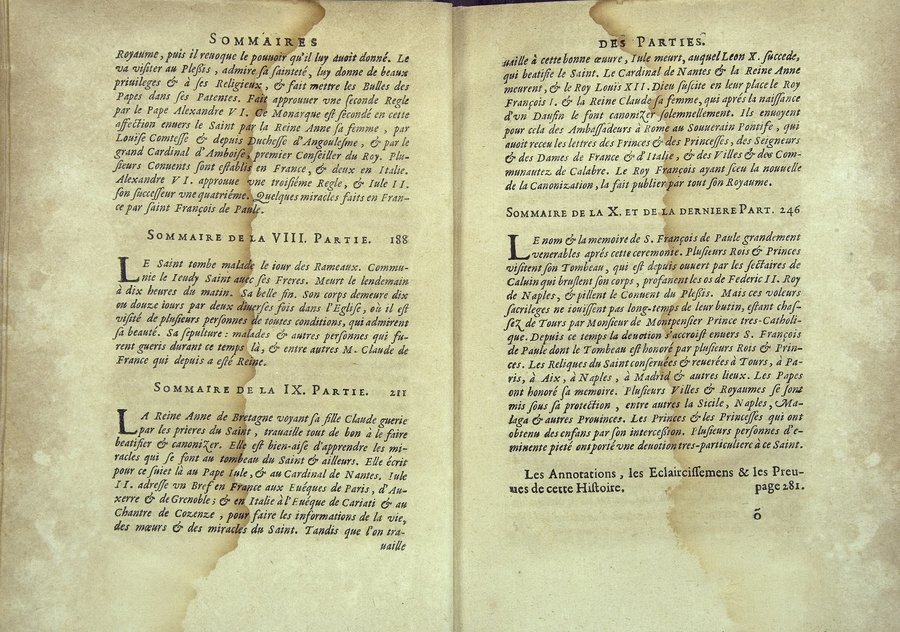 SOMMAIRES
Royaume, puis il reuoque le pouuoir qu'il luy auoit donné. Le
va visiter au Pleßis, admire sa sainteté, luy donne de beaux
priuileges & à ses Religieux, & fait mettre les Bulles des
Papes dans ses Patentes. Fait approuuer vne seconde Regle
par le Pape Alexandre VI. Ce Monarque est secondé en cette
affection enuers le Saint par la Reine Anne sa femme, par
Louise Comtesse & depuis Duchesse d'Angoulesme, & par le
grand Cardinal d'Amboise, premier Conseiller du Roy. Plu-
sieurs Conuents sont establis en France, & deux en Italie.
Alexandre VI. approuue vne troisiéme Regle, & Iule II.
son successeur vne quatriéme. Quelques miracles faits en Fran-
ce par saint François de Paule.
SOMMAIRE DE LA VIII. PARTIE. 188
LE Saint tombe malade le iour des Rameaux. Commu-
nie le Ieudy Saint auec ses Freres. Meurt le lendemain
à dix heures du matin. Sa belle fin. Son corps demeure dix
ou douze iours par deux diuerses fois dans l'Eglise, où il est
visité de plusieurs personnes de toutes conditions, qui admirent
sa beauté. Sa sepulture: malades & autres personnes qui fu-
rent gueris durant ce temps là, & entre autres M. Claude de
France qui depuis a esté Reine.
SOMMAIRE DE LA IX. PARTIE. 211
LA Reine Anne de Bretagne voyant sa fille Claude guerie
par les prieres du Saint, trauaille tout de bon à le faire
beatifier & canonizer. Elle est bien-aise d'apprendre les mi-
racles qui se font au tombeau du Saint & ailleurs. Elle écrit
pour ce suiet là au Pape Iule, & au Cardinal de Nantes. Iule
II. adresse vn Bref en France aux Euéques de Paris, d'Au-
xerre & de Grenoble; & en Italie à l'Euéque de Cariati & au
Chantre de Cozenze, pour faire les informations de la vie,
des mœurs & des miracles du Saint. Tandis que l'on tra-
uaille
DES PARTIES.
uaille à cette bonne œuure, Iule meurt, auquel Leon X. succede,
qui beatifie le Saint. Le Cardinal de Nantes & la Reine Anne
meurent, & le Roy Louis XII. Dieu suscite en leur place le Roy
François I. & la Reine Claude sa femme, qui aprés la naissance
d'vn Daufin le font canonizer solemnellement. Ils enuoyent
pour cela des Ambassadeurs à Rome au Souuerain Pontife, qui
auoit receu les lettres des Princes & des Princesses, des Seigneurs
& des Dames de France & d'Italie, & des Villes & des Com-
munautez de Calabre. Le Roy François ayant sceu la nouuelle
de la Canonization, la fait publier par tout son Royaume.
SOMMAIRE DE LA X. ET DE LA DERNIERE PART. 246
LE nom & la memoire de S. François de Paule grandement
venerables aprés cette ceremonie. Plusieurs Rois & Princes
visitent son Tombeau, qui est depuis ouuert par les sectaires de
Caluin qui bruslent son corps, profanent les os de Federic II. Roy
de Naples, & pillent le Conuent du Pleßis. Mais ces voleurs
sacrileges ne iouissent pas long-temps de leur butin, estant chas-
sez de Tours par Monsieur de Montpensier Prince tres-Catholi-
que. Depuis ce temps la deuotion s'accroist enuers S. François
de Paule dont le Tombeau est honoré par plusieurs Rois & Prin-
ces. Les Reliques du Saint conseruées & reuerées à Tours, à Pa-
ris, à Aix, à Naples, à Madrid & autres lieux. Les Papes
ont honoré sa memoire. Plusieurs Villes & Royaumes se sont
mis sous sa protection, entre autres la Sicile, Naples, Ma-
laga & autres Prouinces. Les Princes & les Princesses qui ont
obtenu des enfans par son intercession. Plusieurs personnes d'e-
minente pieté ont porté vne deuotion tres-particuliere à ce Saint.
Les Annotations, les Eclaircissemens & les Preu-
ues de cette Histoire. page 281.
õ